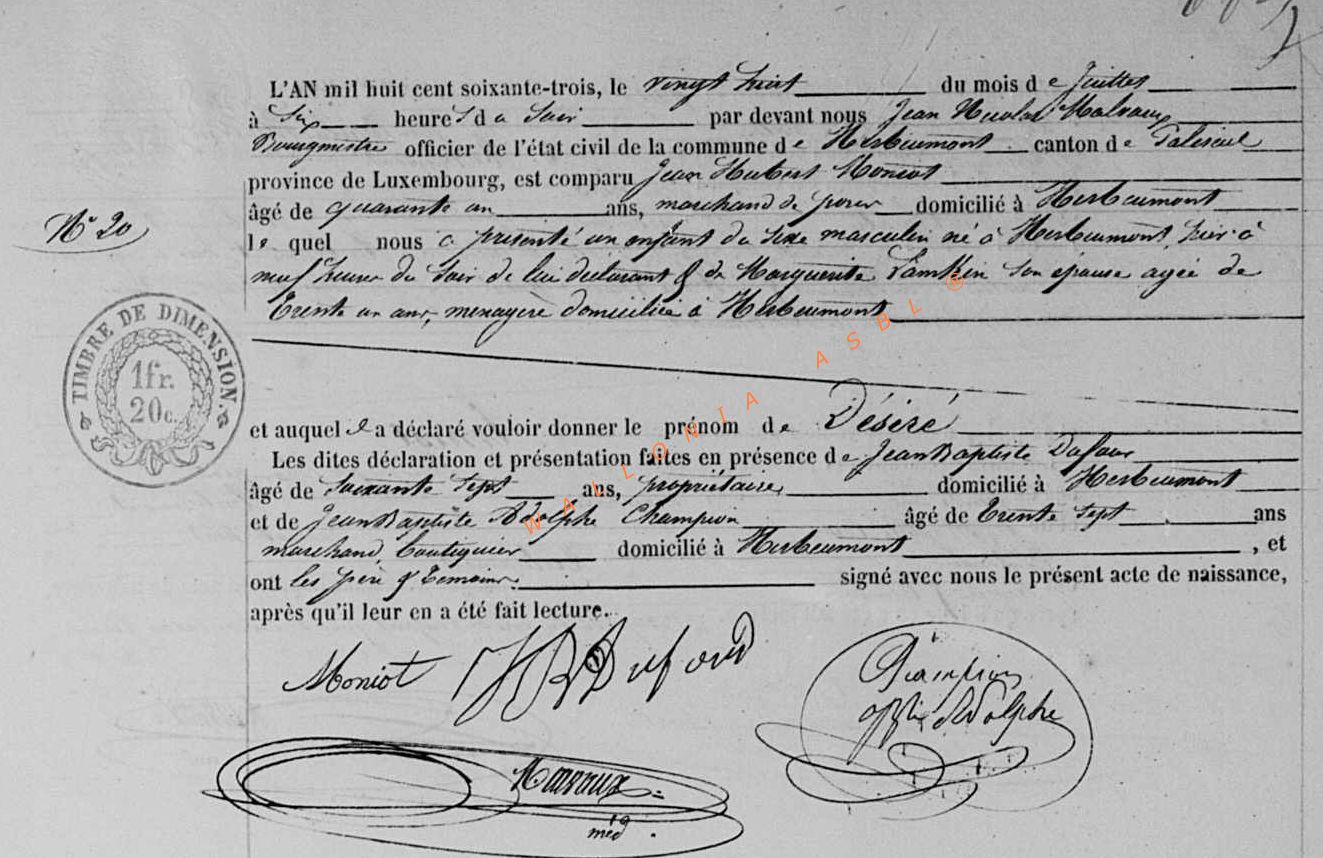 L'AN mil huit cent soixante-trois, le vingt huit du mois de Juillet
à Six heures du Soir par devant nous Jean Nicolas Malvaux
Bourgmestre officier de l'état civil de la commune de Herbeumont canton de Paliseul
province de Luxembourg, est comparu Jean Hubert Moniot
âgé de quarante un ans, marchand de porcs domicilié à Herbeumont
N° 20
lequel nous a présenté un enfant du sexe masculin né à Herbeumont, hier à
neuf heures du Soir de lui déclarant & de Marguerite Lamkin son épouse agée de
Trente un ans, menagère domiciliée à Herbeumont
TIMBRE DE DIMENSION.
1fr.
20c.
et auquel il a déclaré vouloir donner le prénom de Désiré
Les dites déclaration et présentation faites en présence de Jean Baptiste Dufour
âgé de Soixante Sept ans, propriétaire domicilié à Herbeumont
et de Jean Baptiste Adolphe Champion âgé de Trente Sept ans
marchand boutiquier domicilié à Herbeumont, et
ont les père & Temoins signé avec nous le présent acte de naissance,
après qu'il leur en a été fait lecture.
Moniot JB Dufour Champion
Adolphe
Malvaux
méd
WALLONIA ASBL ®